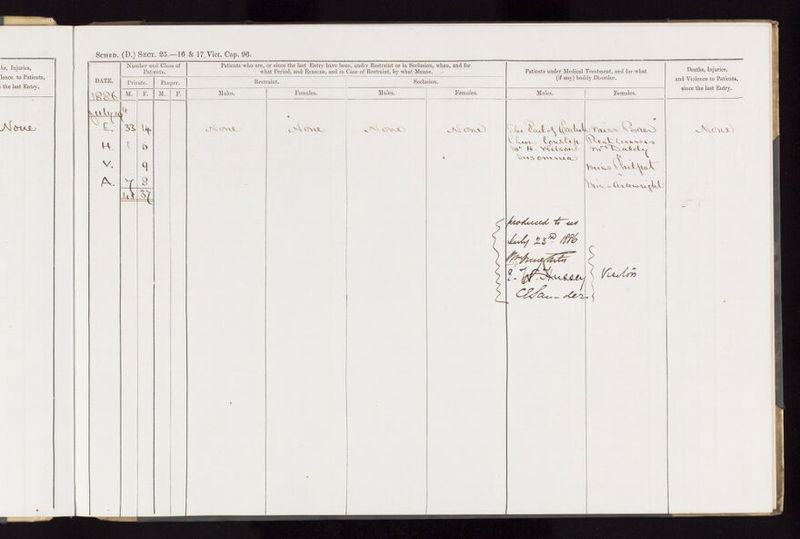 ths, Injuries,
lence to Patients,
the last Entry.
None
SCHED. (D.) SECT. 25.—16 & 17 Vict. Cap. 96.
DATE.
Number and Class of Patients.
Private. Pauper.
M. F. M. F.
Patients who are, or since the last Entry have been, under Restraint or in Seclusion, when, and for
what Period, and Reasons, and in Case of Restraint, by what Means.
Restraint. Seclusion.
Males. Females. Males. Females.
Patients under Medical Treatment, and for what
(if any) bodily Disorder.
Males. Females.
Deaths, Injuries,
and Violence to Patients,
since the last Entry.
1886
July
E. 33 14 None None None None Miss None
H. 1 6
Mr H. Wilson
V. 9 Insomnia
Miss Philpot
A. 7 8
41 37
produced to us
July 23rd 1886
Visitors